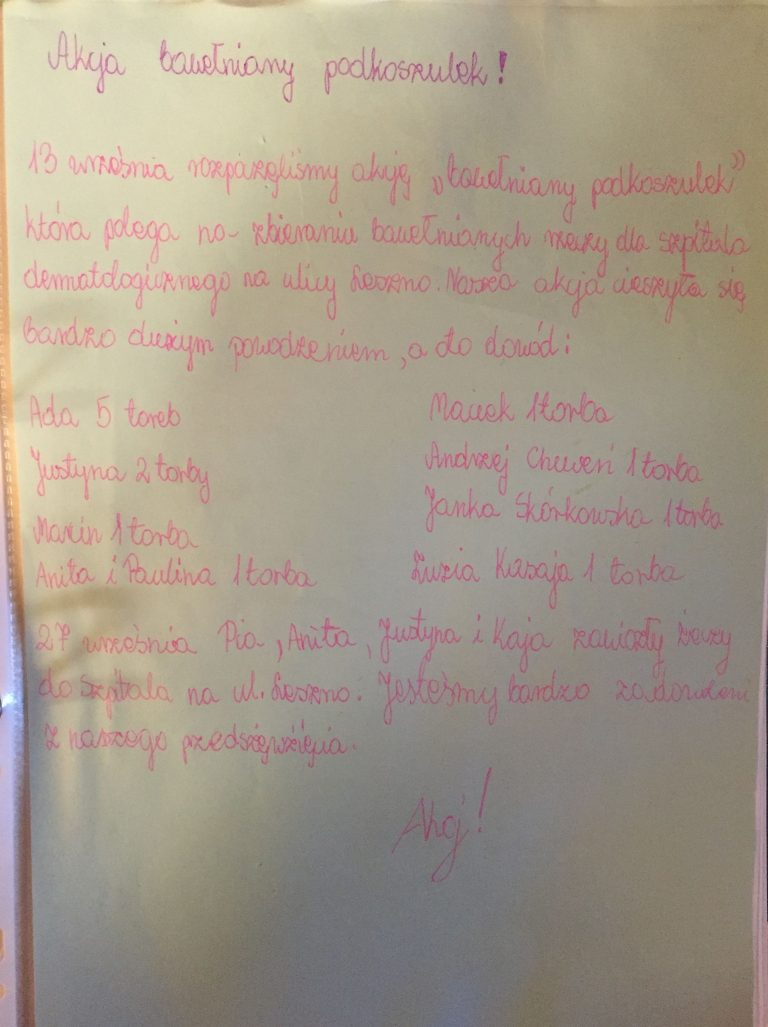 Akcja bawełniany podkoszulek!
13 września rozpaczęliśmy akcję „bawełniany podkoszulek”
która polega na zbieraniu bawełnianych rzeczy dla szpitala
dermatologicznego na ulicy Leszno. Nasza akcja cieszyła się
bardzo dużym powodzeniem, a oto dowód:
Ada 5 toreb
Justyna 2 torby
Marcin 1 torba
Anita i Paulina 1 torba
Maciek 1 torba
Andrzej 1 torba
Janka Skórkowska 1 torba
Zuzia 1 torba
27 września Pia, Anita, Justyna i Kaja zawiozły rzeczy
do szpitala na ul. Leszno. Jesteśmy bardzo zadowoleni
z naszego przedsięwzięcia.
Ahoj!